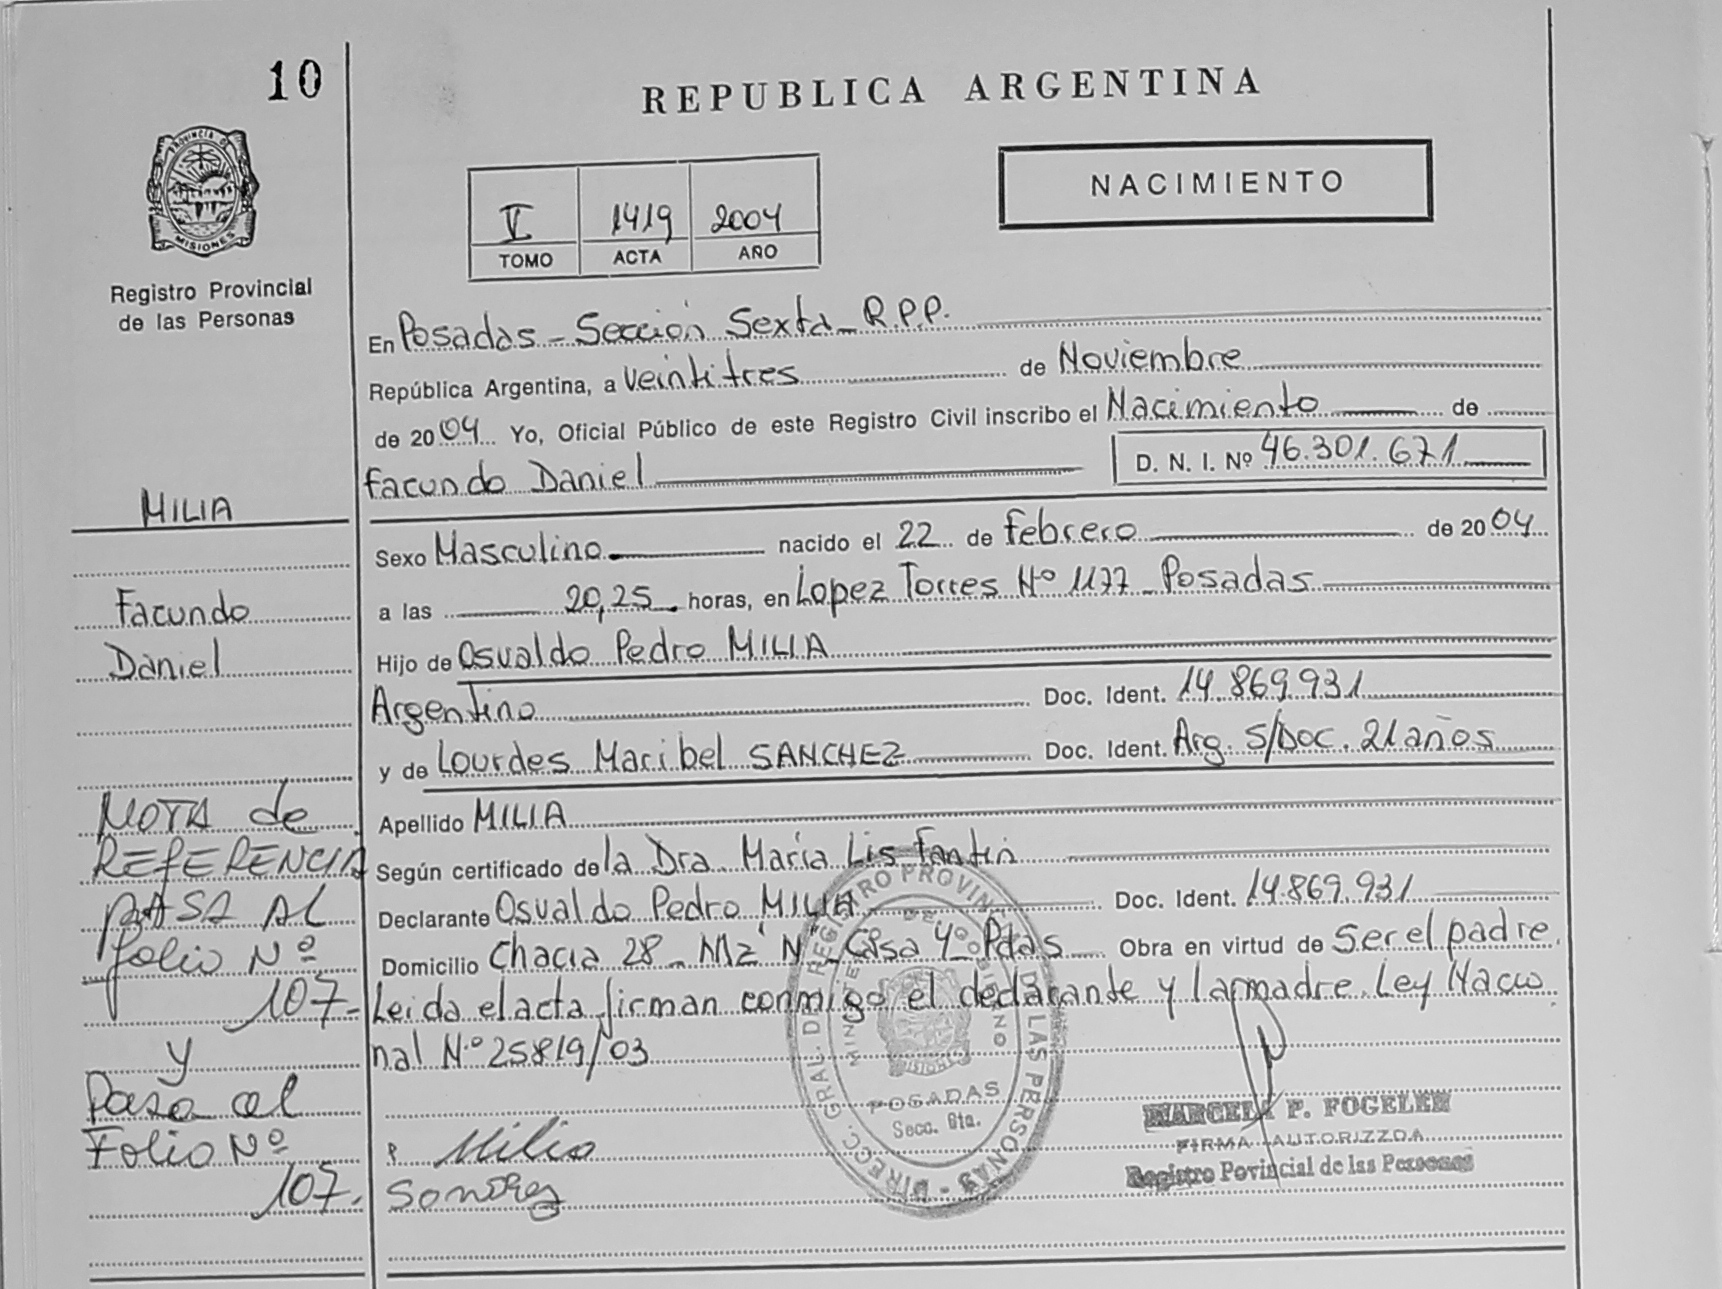 10
REPUBLICA ARGENTINA
PROVINCIA DE
MISIONES
Registro Provincial
de las Personas
V 1419 2004
TOMO ACTA AÑO
NACIMIENTO
En Posadas - Sección Sexta - R.P.P.
República Argentina, a veintitres de Noviembre
de 2004 Yo, Oficial Público de este Registro Civil inscribo el Nacimiento de
Facundo Daniel D. N. I. Nº 46.301.671
Sexo Masculino nacido el 22 de Febrero de 2004
a las 20,25 horas, en Lopez Torres Nº 1177 - Posadas
Hijo de Osvaldo Pedro MILIA
Argentino Doc. Ident. 14.869.931
y de Lourdes Maribel SANCHEZ Doc. Ident. Arg. S/Doc. 21 años
Apellido MILIA
Según certificado de la Dra. María Lis Fantin
Declarante Osvaldo Pedro MILIA Doc. Ident. 14.869.931
Domicilio Chacra 28 - Mz "N" - Casa 4º. Pdas Obra en virtud de Ser el padre.
Leida el acta firman conmigo el declarante y la madre. Ley Nacio
nal N.º 25819/03
MILIA
Facundo
Daniel
NOTA de
REFERENCIA
PASA AL
folio Nº
107-
y
Pasa al
Folio Nº
107.
Milia
DIRECC. GRAL. DE REGISTRO PROVINCIAL DE LAS PERSONAS
POSADAS
Secc. 6ta.
MARCELA P. FOGELER
FIRMA AUTORIZZDA
Registro Povincial de las Personas